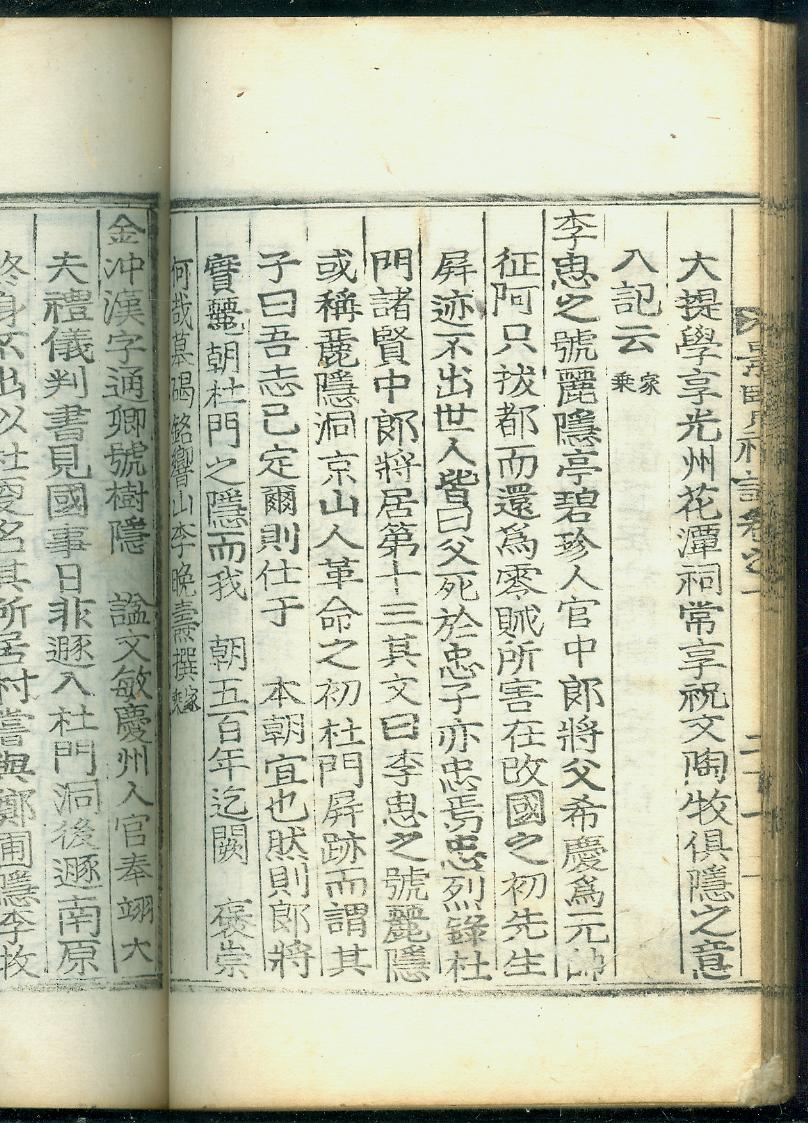 景賢祠誌卷之一
大提學享光州花潭祠常享祝文陶牧俱隱之意
入記云家乘
李惠之號麗隱亭碧珍人官中郞將父希慶爲元帥
征阿只拔都而還爲零賊所害在改國之初先生
屛迹不出世人皆曰父死於忠子亦忠焉忠烈錄杜
門諸賢中郞將居第十三其文曰李惠之號麗隱
或稱麗隱洞京山人革命之初杜門屛跡而謂其
子曰吾志已定爾則仕于 本朝宜也然則郞將
實麗朝杜門之隱而我 朝五百年迄闕 褒崇
何哉墓碣銘響山李晩燾撰家乘
金冲漢字通卿號樹隱 謚文敏慶州人官奉翊大
夫禮儀判書見國事日非遯入杜門洞後遯南原
終身不出以杜 名其所居村嘗與鄭圃隱李牧